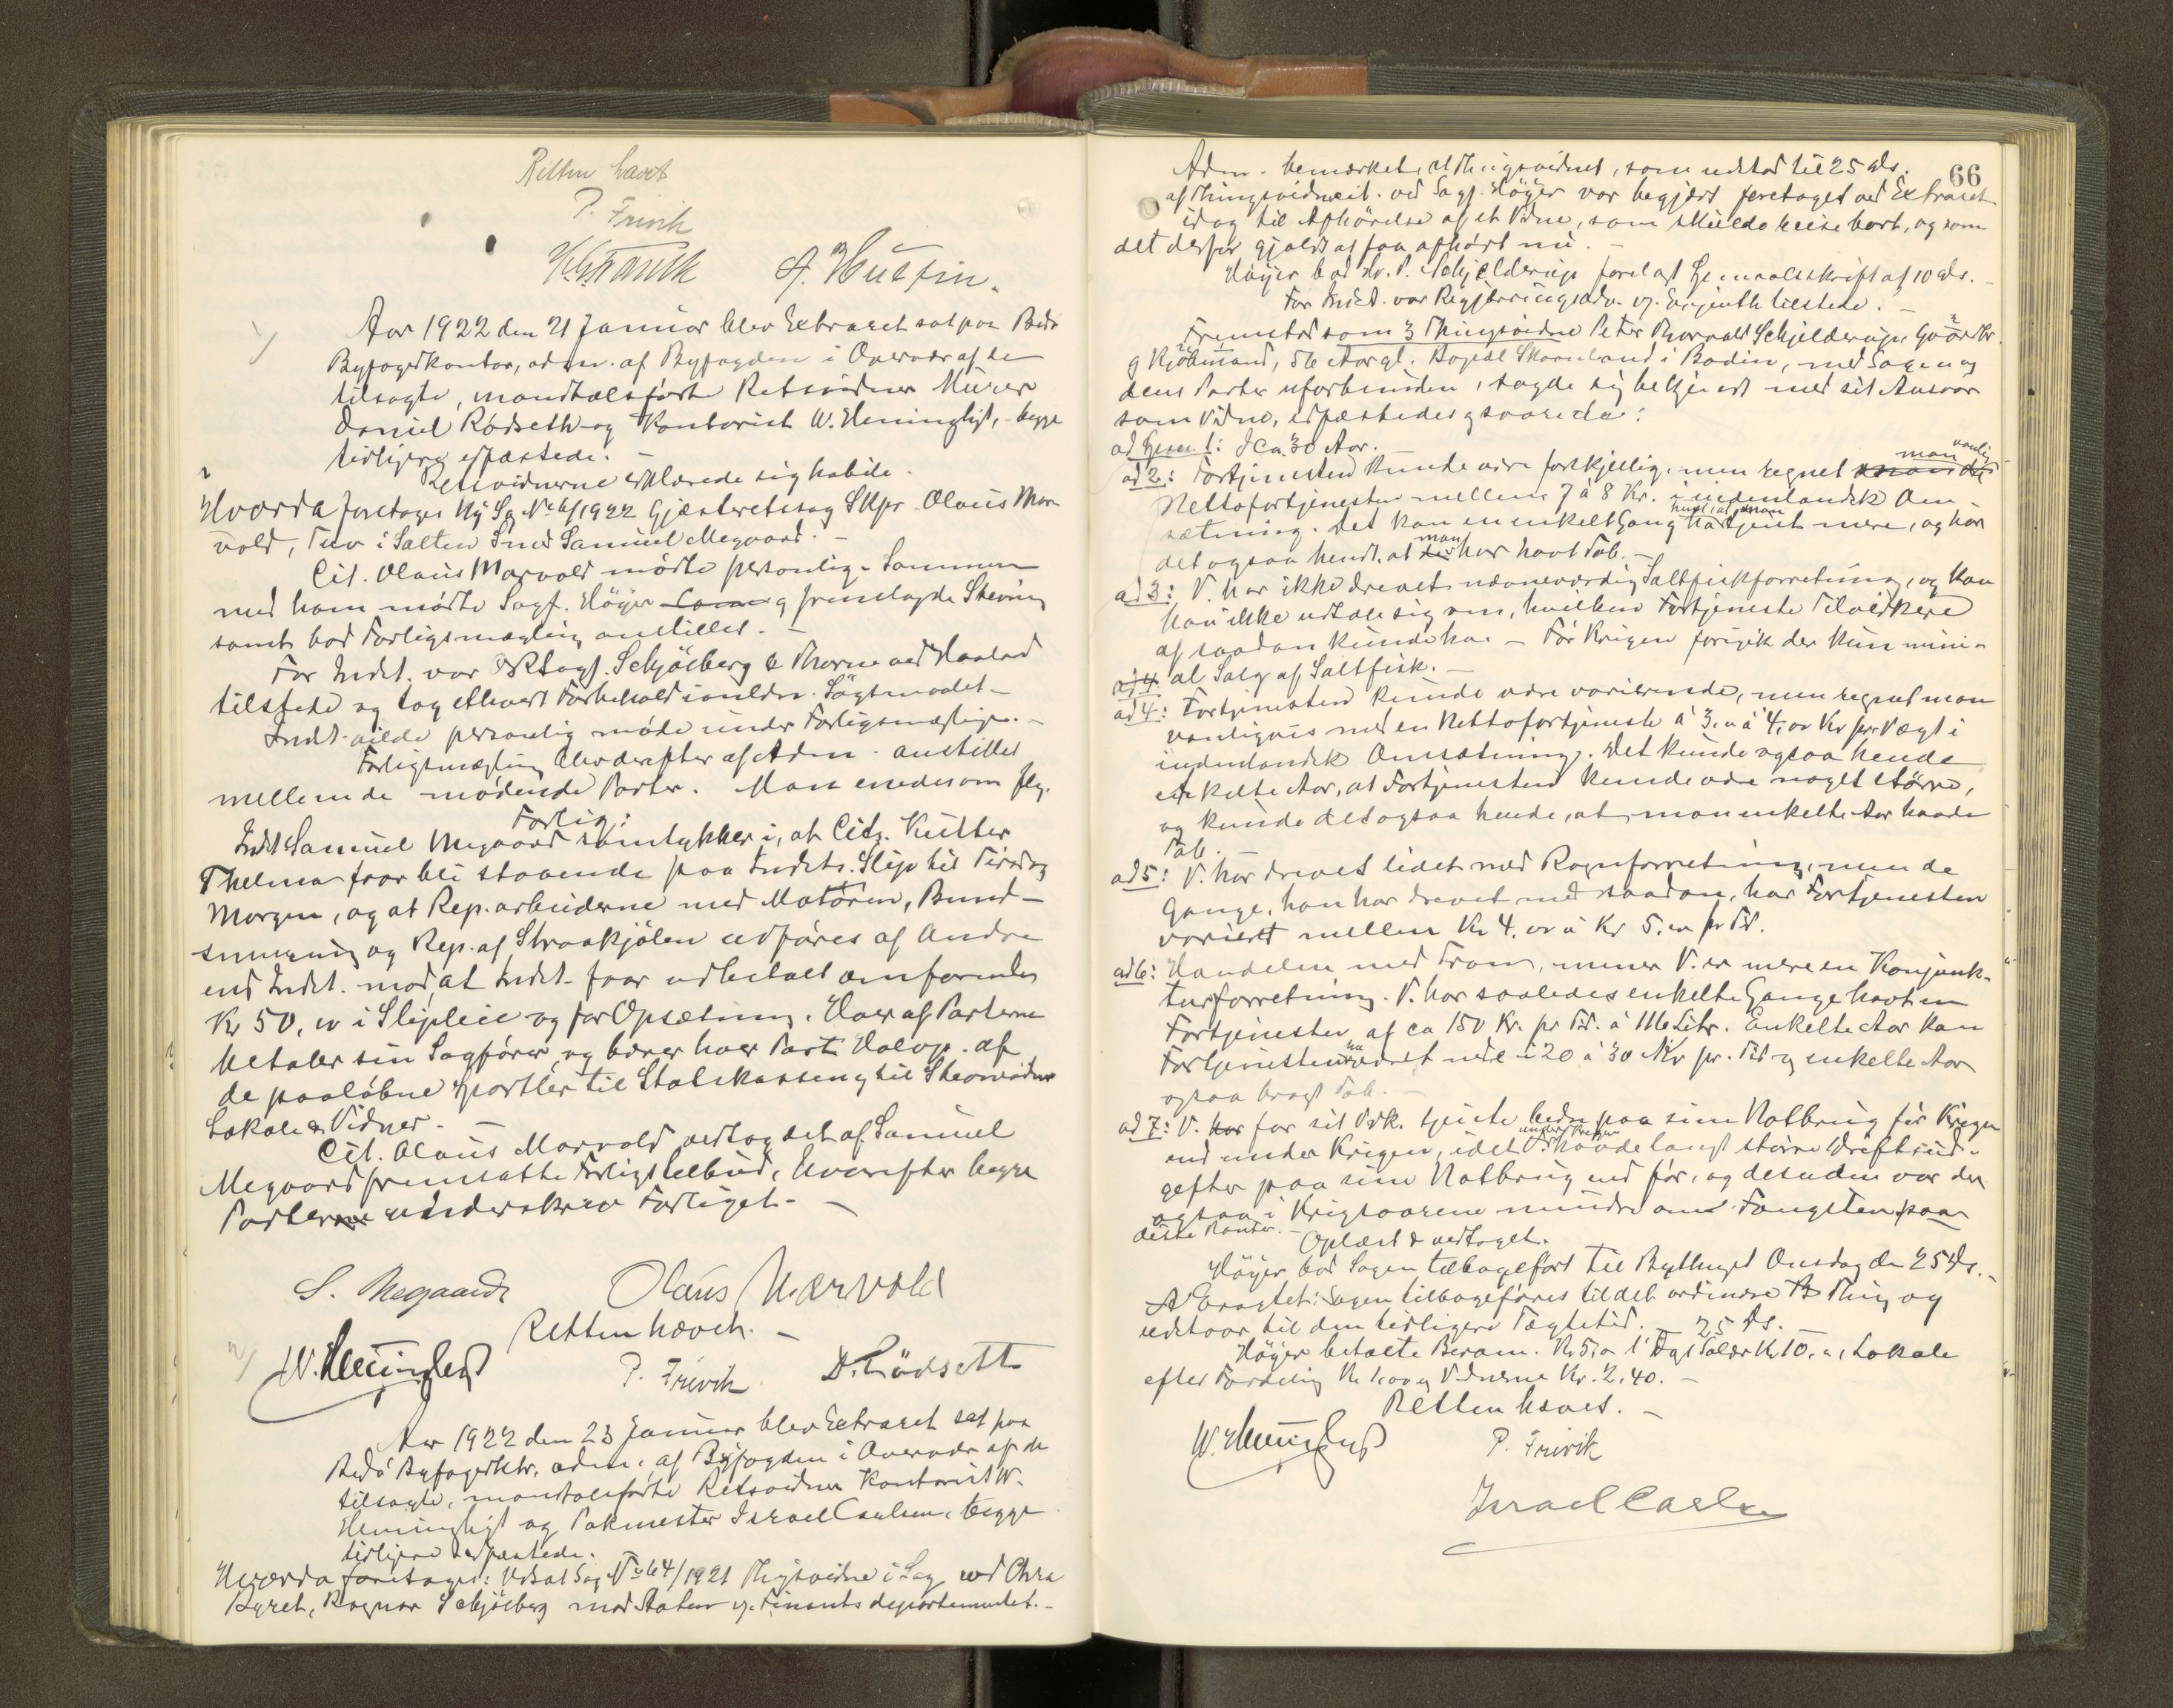 Retten hævet
P. Frivik
A. Hustin.
Aar 1922 den 21 Januar blev Extraret sat paa Bodø
Byfogedkontor, adm. af Byfogden i Overvær af de
tilsagte, mandtalsførte Retsvidner Murer
Daniel Rødseth og Kontorist W. Hemingligt, begge
tidligere edfæstede. —
Retsvidnerne erklærede sig habile.
Hvorda foretoges Ny Sag No 6/1922 Gjæsteretssag Skpr. Olaus Mar-
vold, Tuv i Salten mod Samuel Megaard. —
Cit. Olaus Marvold mødte personlig. Sammen
med ham mødte Sagf. Høyer og fremlagde Stevning
samt bad Forligsmægling anstillet. —
For Indst. var Sagf. Schjøsberg ved Haaland
tilstede og tog ethvert Forbehold Søgsmaalet —
Indst. vilde personlig møde under Forligsmæglingen. —
Forligsmægling blev derefter af Adm. anstillet
mellem de mødende Parter. Man enedes om flg.
Forlig:
Indst Samuel Megaard samtykker i, at Cits. Kutter
Thelma faar bli staaende paa Indsts. Slip til Tirsdag
Morgen, og at Rep. arbeiderne med Motoren, Bund-
smurning og Rep. af Straakjølen udføres af Andre
end Indst. mod at Indst. faar udbetalt omforenede
Kr 50, oo i Slipleie og for Opsætning. Hver af Parterne
betaler sin Sagfører og bærer hver Part Halvp. af
de paaløbne Sportler til Statskassen og til Stevnevidner
Lokale & Vidner. —
Cit. Olaus Marvold vedtog det af Samuel
Megaard fremsatte Forligstilbud, hvorefter begge
Parter underskrev Forliget. —
S. Megaard Olaus Marvold
Retten hævet. —
W. Hemingligt P. Frivik D. Rødseth
Aar 1922 den 23 Januar blev Extraret sat paa
Bodø Byfogedktr. adm. af Byfogden i Overvær af de
tilsagte, mandtalsførte Retsvidner Kontorist W.
Hemingligt og Pakmester Israel Carlsen, begge
tidligere edfæstede.
Hvorda foretoges: Udsat Sag No 64/1921 Thingsvidne i Sag ved Chra
Byret, Ragnar Schjølberg mod Staten v. Finantsdepartementet. —
66
Adm. bemærket, at Thingsvidnet, som udstod til 25 ds.
af Thingsvidneit. ved Sagf. Høyer var begjært foretaget ved Extraret
idag til Afhørelse af et Vidne, som skulde reise bort, og som
det derfor gjaldt at faa afhørt nu. —
Høyer bad Hr. P. Schjelderup forelagt Gjenmaalsskrift af 10 ds. —
For Indst. var Regjeringsadv. v. tilstede. —
Fremstod som 3 Thingsvidne Peter Thorvald Schjelderup, Gaardbr.
og Kjøbmand, 56 Aar gl. Bopæl Skarnland i Bodin, med Sagen og
dens Parter uforbunden, sagde sig bekjendt med sit Ansvar
som Vidne, edfæstedes og svarede:
ad Gjenm 1: I ca. 30 Aar.
ad 2: Fortjenesten kunde være forskjellig, men regnet man vanlig
Nettofortjenesten mellem 7 à 8 Kr. i indenlandsk Om-
sætning. Det kan en enkelt Gang hændt, at man har tjent mere, og har
det ogsaa hendt, at man har havt Tab. —
ad 3: V. har ikke drevet nævneværdig Saltfiskforretning, og kan
han ikke udtale sig om, hvilken Fortjeneste Tilvirkere
af saadan kunde ha. — Før Krigen foregik der kun mini-
ad 4 alt Salg af Saltfisk. —
ad 4: Fortjenesten kunde være varierende, men regnet man
vanligvis med en Nettofortjeneste à 3, oo à 4, oo Kr pr. Vægt i
indenlandsk Omsætning. Det kunde ogsaa hende
enkelte Aar, at Fortjenesten kunde være noget større,
og kunde det ogsaa hende, at man enkelte Aar havde
Tab.
ad 5: V. har drevet lidet med Rognforretning, men de
Gange, han har drevet med saadan, har Fortjenesten
varieret mellem Kr 4, oo à Kr 5, oo pr Td.
ad 6: Handelen med Tran, mener V. er mere en Konjunk-
turforretning. V. har saaledes enkelte Gange havt en
Fortjeneste af ca 150 Kr. pr Td. à 116 Litr. Enkelte Aar kan
Fortjenesten ha været nede i 20 à 30 Kr pr. Td og enkelte Aar
ogsaa bragt Tab. —
ad 7: V. har for sit Vdk. tjente bedre paa sine Notbrug før Krigen
end under Krigen, idet V. under Krigen havde langt større Driftsud-
gefter paa sine Notbrug end før, og desuden var der
ogsaa i Krigsaarene mindre om Fangsten paa
disse Kanter. — Oplæst & vedtaget.
Høyer bad Sagen tilbageført til Bythinget Onsdag den 25 ds. —
Eragtet: Sagen tilbageføres til det ordinære Thing og
udstaar til den tidligere Tægtetid. — 25 ds. —
Høyer betalte Beram. Kr. 5, oo 1 Dags Salær Kr 10, oo, Lokale
efter Fordeling Kr 1, oo og Vidnerne Kr. 2,40. —
Retten hævet. —
W. Hemingligt P. Frivik
Israel Carlsen